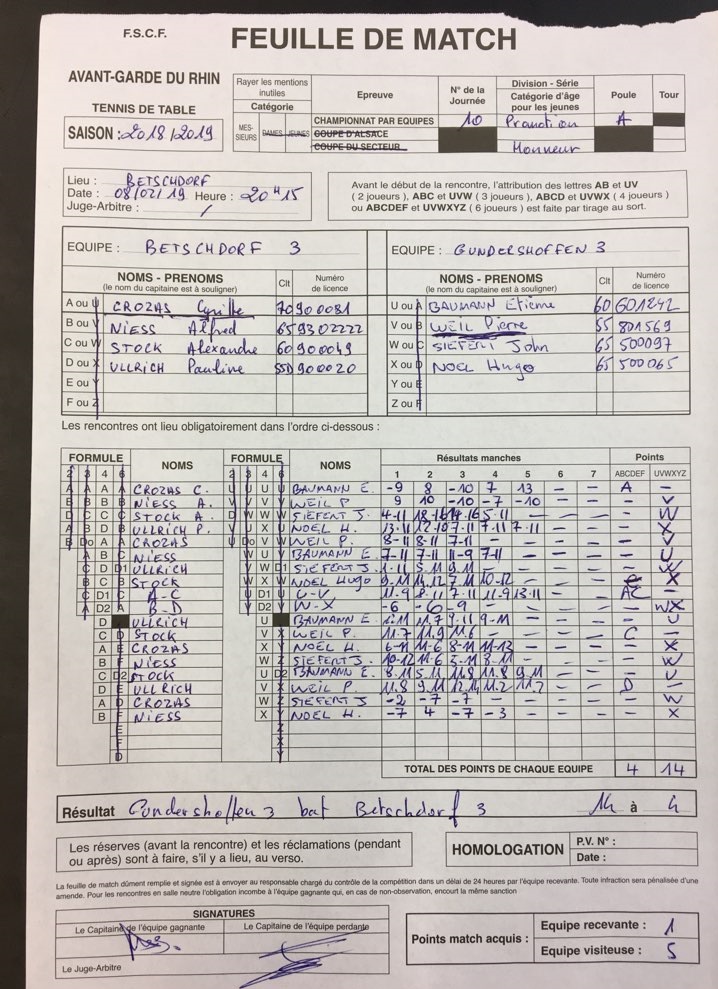 F.S.C.F.
FEUILLE DE MATCH
AVANT-GARDE DU RHIN
TENNIS DE TABLE
SAISON : 2018/2019
Rayer les mentions inutiles
Catégorie
MES-SIEURS DAMES JEUNES
Epreuve
CHAMPIONNAT PAR EQUIPES
COUPE D'ALSACE
COUPE DU SECTEUR
N° de la Journée
10
Division - Série
Catégorie d'âge pour les jeunes
Promotion
Honneur
Poule
A
Tour
Lieu : BETSCHDORF
Date : 08/02/19 Heure : 20H15
Juge-Arbitre : /
Avant le début de la rencontre, l'attribution des lettres AB et UV
( 2 joueurs ), ABC et UVW ( 3 joueurs ), ABCD et UVWX ( 4 joueurs )
ou ABCDEF et UVWXYZ ( 6 joueurs ) est faite par tirage au sort.
EQUIPE : BETSCHDORF 3
NOMS - PRENOMS
(le nom du capitaine est à souligner)
Clt
Numéro de licence
A ou U CROZAS Cyrille 70 900081
B ou V NIESS Alfred 65 9302222
C ou W STOCK Alexandre 60 900049
D ou X ULLRICH Pauline 55D 900020
E ou Y
F ou Z
EQUIPE : GUNDERSHOFFEN 3
NOMS - PRENOMS
(le nom du capitaine est à souligner)
Clt
Numéro de licence
U ou A BAUMANN Etienne 60 601242
V ou B WEIL Pierre 55 801569
W ou C SIEFERT John 65 500097
X ou D NOEL Hugo 65 500065
Y ou E
Z ou F
Les rencontres ont lieu obligatoirement dans l'ordre ci-dessous :
FORMULE NOMS FORMULE NOMS Résultats manches Points
2 3 4 6 2 3 4 6 1 2 3 4 5 6 7 ABCDEF UVWXYZ
A CROZAS C. U BAUMANN E. -9 8 -10 7 13 - - A -
B NIESS A. V WEIL P. 9 10 -10 -7 -10 - - - V
C STOCK A. W SIEFERT J. 4-11 - - W
D ULLRICH P. X NOEL H. 13-11 12-10 7-11 7-11 7-11 - - - X
A CROZAS V WEIL P. 8-11 8-11 7-11 - - - - - V
B NIESS U BAUMANN E. 7-11 7-11 11-9 7-11 - - - - U
D ULLRICH W SIEFERT J. 5-11 9-11 - - - - - W
C STOCK X NOEL Hugo 9-11 14-12 7-11 10-12 - - - X
D1 A-C D1 U-V 11-9 8-11 7-11 11-9 13-11 - - AC -
D2 B-D D2 W-X -6 -6 -9 - - - - - WX
D ULLRICH U BAUMANN E. 11-7 9-11 9-11 - - - - U
C STOCK V WEIL P. 11-7 11-9 11-6 - - - - C -
A CROZAS X NOEL H. 6-11 11-6 8-11 11-13 - - - - X
B NIESS W SIEFERT J. 10-12 11-6 5-11 8-11 - - - - W
C STOCK U BAUMANN E. 8-11 5-11 11-8 11-8 9-11 - - - U
D ULLRICH V WEIL P. 11-8 9-11 12-14 11-2 11-7 - - D -
A CROZAS W SIEFERT J -2 -7 -7 - - - - - W
B NIESS X NOEL H. -7 4 -7 -3 - - - - X
TOTAL DES POINTS DE CHAQUE EQUIPE 4 14
Résultat Gundershoffen 3 bat Betschdorf 3 14 à 4
Les réserves (avant la rencontre) et les réclamations (pendant
ou après) sont à faire, s'il y a lieu, au verso.
HOMOLOGATION
P.V. N° :
Date :
La feuille de match dûment remplie et signée est à envoyer au responsable chargé du contrôle de la compétition dans un délai de 24 heures par l'équipe recevante. Toute infraction sera pénalisée d'une
amende. Pour les rencontres en salle neutre l'obligation incombe à l'équipe gagnante qui, en cas de non-observation, encourt la même sanction
SIGNATURES
Le Capitaine de l'équipe gagnante
Le Capitaine de l'équipe perdante
Le Juge-Arbitre
Points match acquis :
Equipe recevante : 1
Equipe visiteuse : 5